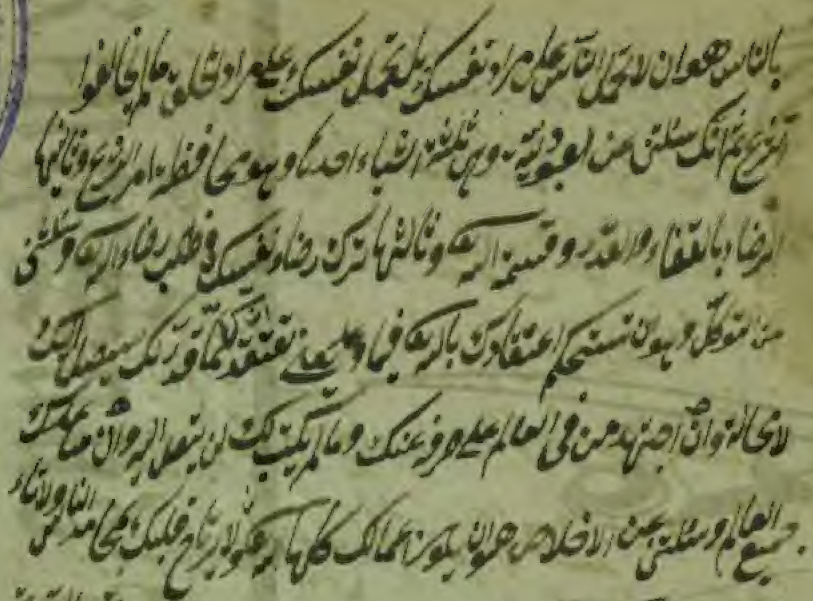 بالناس هو ان لا تحمل الناس على مراد نفسك بل تحمل نفسك على مرادالخلق ما لم يخالفوا
الشرع ثم انك سئلتنى عن العبودية وهى ثلثة اشياء احدها وهو محافظة امر الشرع وثانيها
الرضاء بالقضاء والقدر وقسمة الله وثالثها ترك رضاء نفسك فى طلب رضاء الله وسئلتنى
عن التوكل وهو ان تستحكم اعتقادك بالله فيما وعد يعنى تعتقد ان كلما قدر لك سيصل اليك
لا محالة وان اجتهد من فى العالم على صرفه عنك وما لم يكتب لك لن يتصل اليه وان ساعدك
جميع العالم وسئلتنى عن الاخلاص هو ان يكون اعمالك كلها لله ولا يرتاح قلبك بمحامد الناس ولا تاء